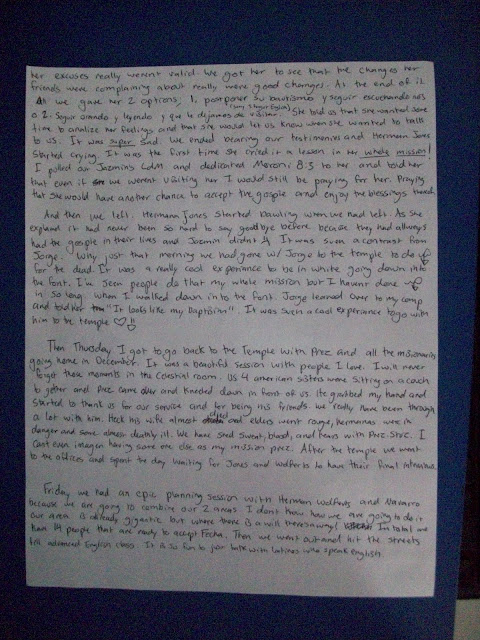 her excuses really weren't valid. We got her to see that the changes her
friends were complaining about really were good changes. At the end of it
we gave her 2 options, 1. postponer su bautismo y seguir escuchando nos
o 2. seguir orando y leyendo y que le dejamos de visitar. She told us that she wanted some
time to analize her feelings and that she would let us know when she wanted to talk
to us. It was super sad. We ended bearing our testimonies and Hermana Jones
started crying. It was the first time she cried in a lesson in her whole mission!
I pulled out Jazmin's LdM and dedicated Moroni 8:3 to her and told her
that even if we weren't visiting her I would still be praying for her. Praying
that she would have another chance to accept the gosple and enjoy the blessings
And then we left. Hermana Jones started bawling when we had left. As she
explaind it had never been so hard to say goodbye before because they had allways
had the gosple in their lives and Jazmin didn't. It was such a contrast from
Jorge. Why just that morning we had gone w/ Jorge to the temple to do
for the dead. It was a really cool experiance to be in white going down into
the font. I've seen people do that my whole mission but I haven't done
in so long. When I walked down into the font Jorge leaned over to my comp
and told her "It looks like my baptisim". It was such a cool experiance to go with
him to the temple
Then Thursday I got to go back to the Temple with Prez and all the missionaries
going home in December. It was a beautiful session with people I love. I will never
forget these moments in the Celestial room. Us 4 american sisters were sitting on a couch
together and Prez came over and kneeled down in front of us. He grabbed my hand and
started to thank us for our service and for being his friends. We really have been through
a lot with him. Heck his wife almost died and elders went rouge, hermanas were in
danger and some almost deathly ill. We have seed sweat, blood, and tears with Prez
cant even imagen having some one else as my mission prez. After the temple we went
to the offices and spent the day waiting for Jones and Wolferts to have their final
Friday we had an epic planning session with Herman Wolferts and Navarro
because we are going to combine our 2 areas. I don't know how we are going to do it
our area is allready gigantic but where there is a will theres a way! In total we
have 14 people that are ready to accept Fecha. Then we went out and hit the streets
advanced English class. It is so fun to just talk with latinos who speak english